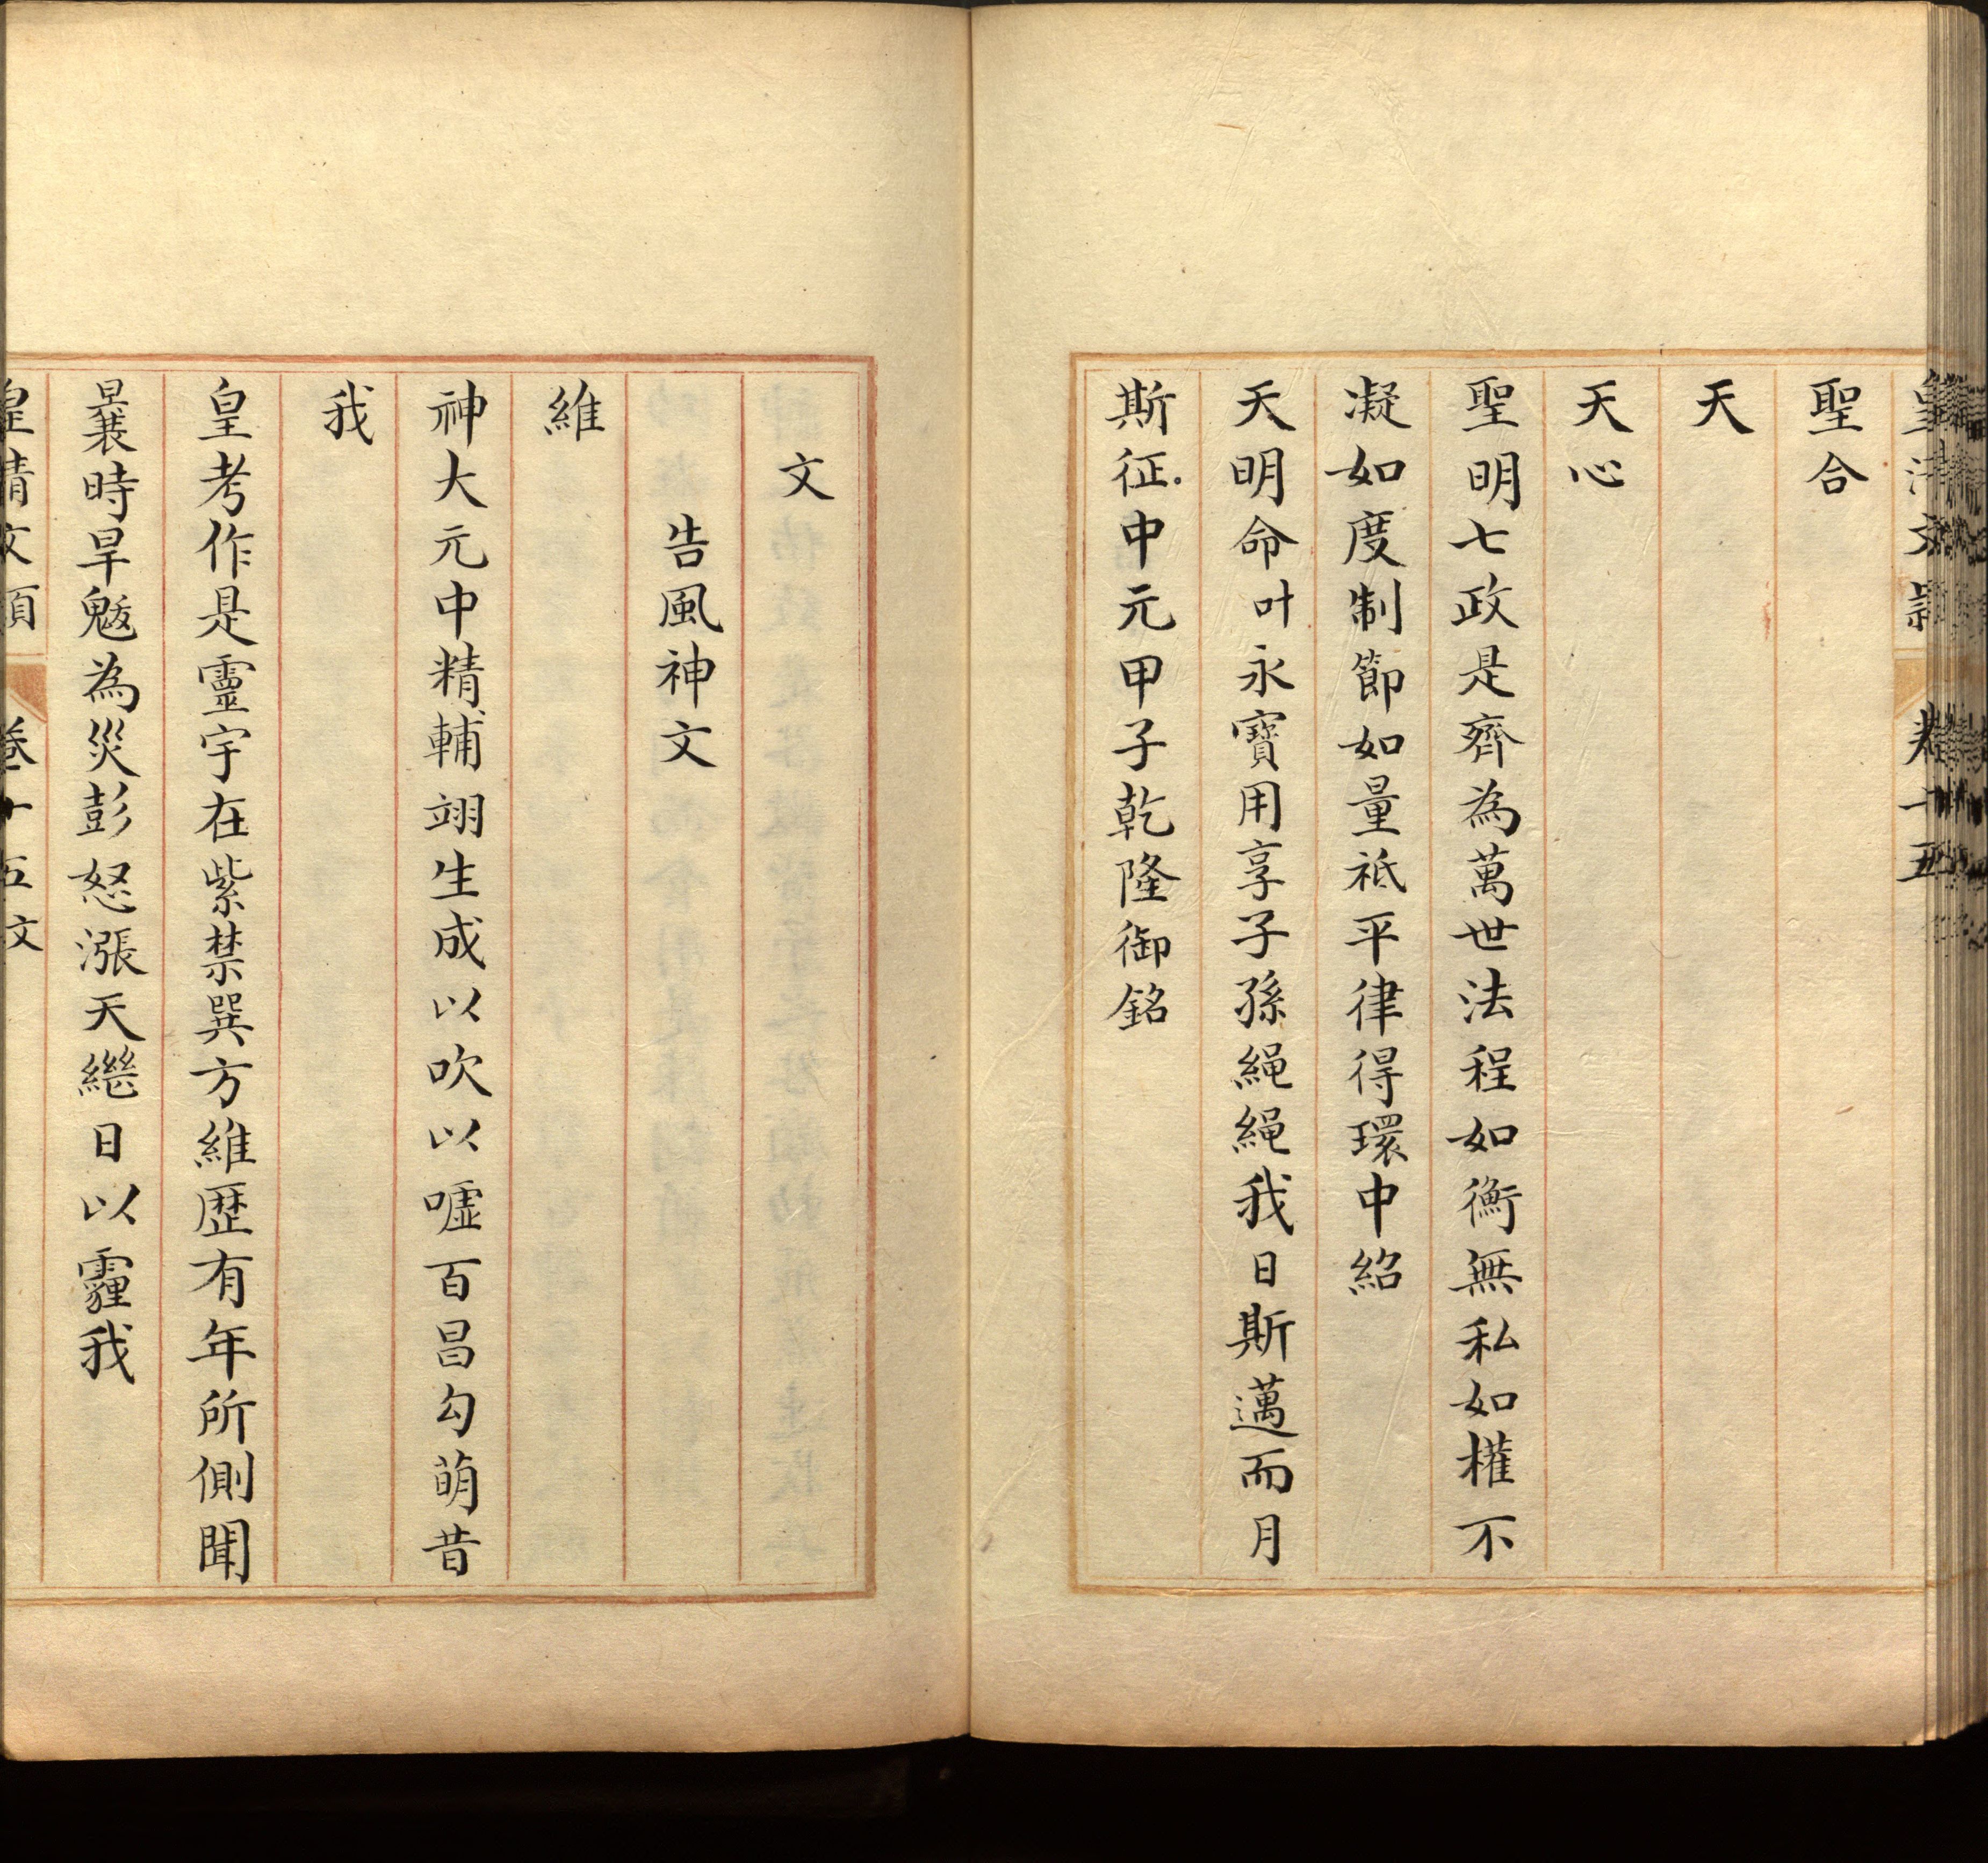 皇清文穎 卷十五
聖合
天
天心
聖明七政是齊為萬世法程如衡無私如權不
凝如度制節如量祗平律得環中紹
天明命叶永寶用享子孫繩繩我日斯邁而月
斯征中元甲子乾隆御銘
文
告風神文
維
神大元中精輔翊生成以吹以噓百昌勾萌昔
我
皇考作是靈宇在紫禁巽方維歷有年所側聞
曩時旱魃為災彭怒漲天繼日以霾我
皇清文頴 卷十五文